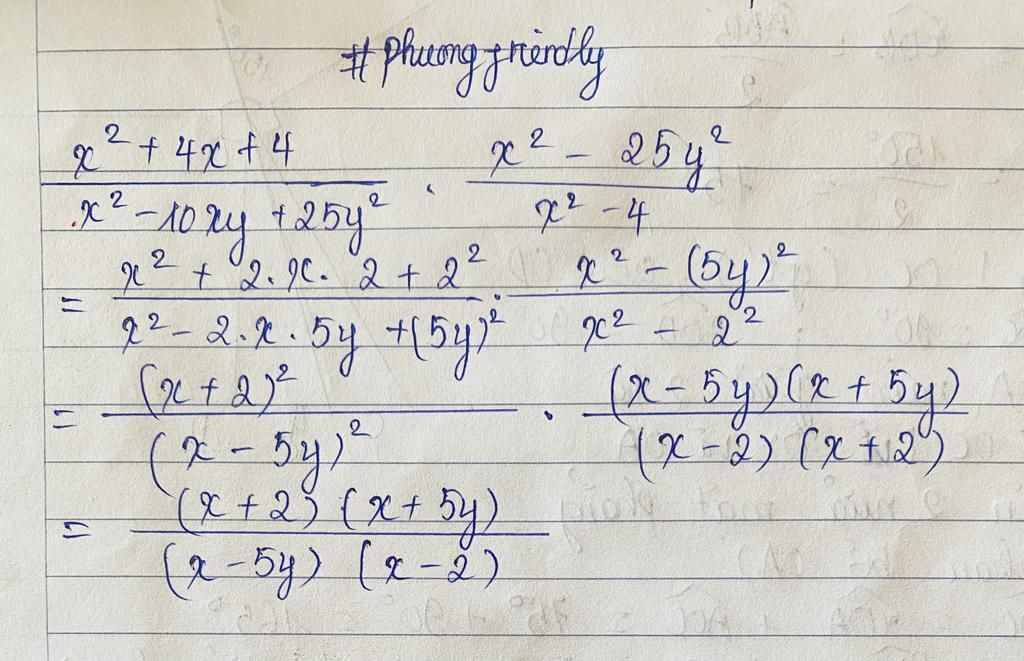 # Phuong friendly
(x² + 4x + 4)/(x² - 10xy + 25y²) . (x² - 25y²)/(x² - 4)
= (x² + 2.x.2 + 2²)/(x² - 2.x.5y + (5y)²) . (x² - (5y)²)/(x² - 2²)
= (x + 2)²/(x - 5y)² . (x - 5y)(x + 5y)/(x - 2)(x + 2)
= (x + 2)(x + 5y)/(x - 5y)(x - 2)